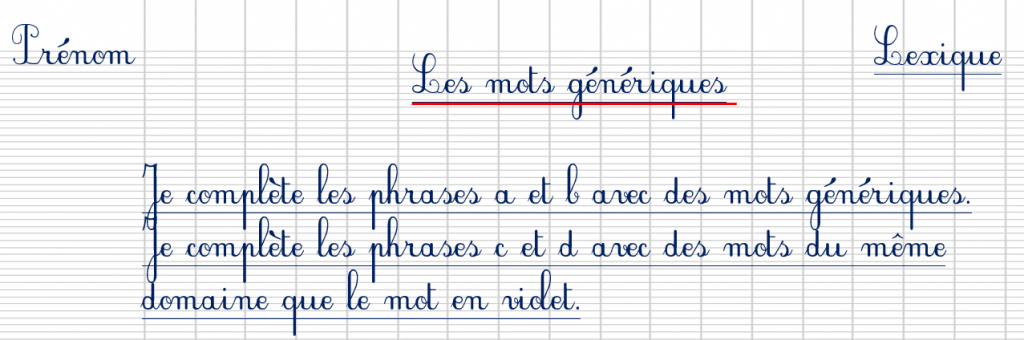 Prénom
Lexique
Les mots génériques
Je complète les phrases a et b avec des mots génériques.
Je complète les phrases c et d avec des mots du même
domaine que le mot en violet.